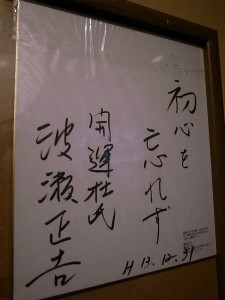 初心を
忘れず
開運杜氏
波瀬正吉
H13.12.31